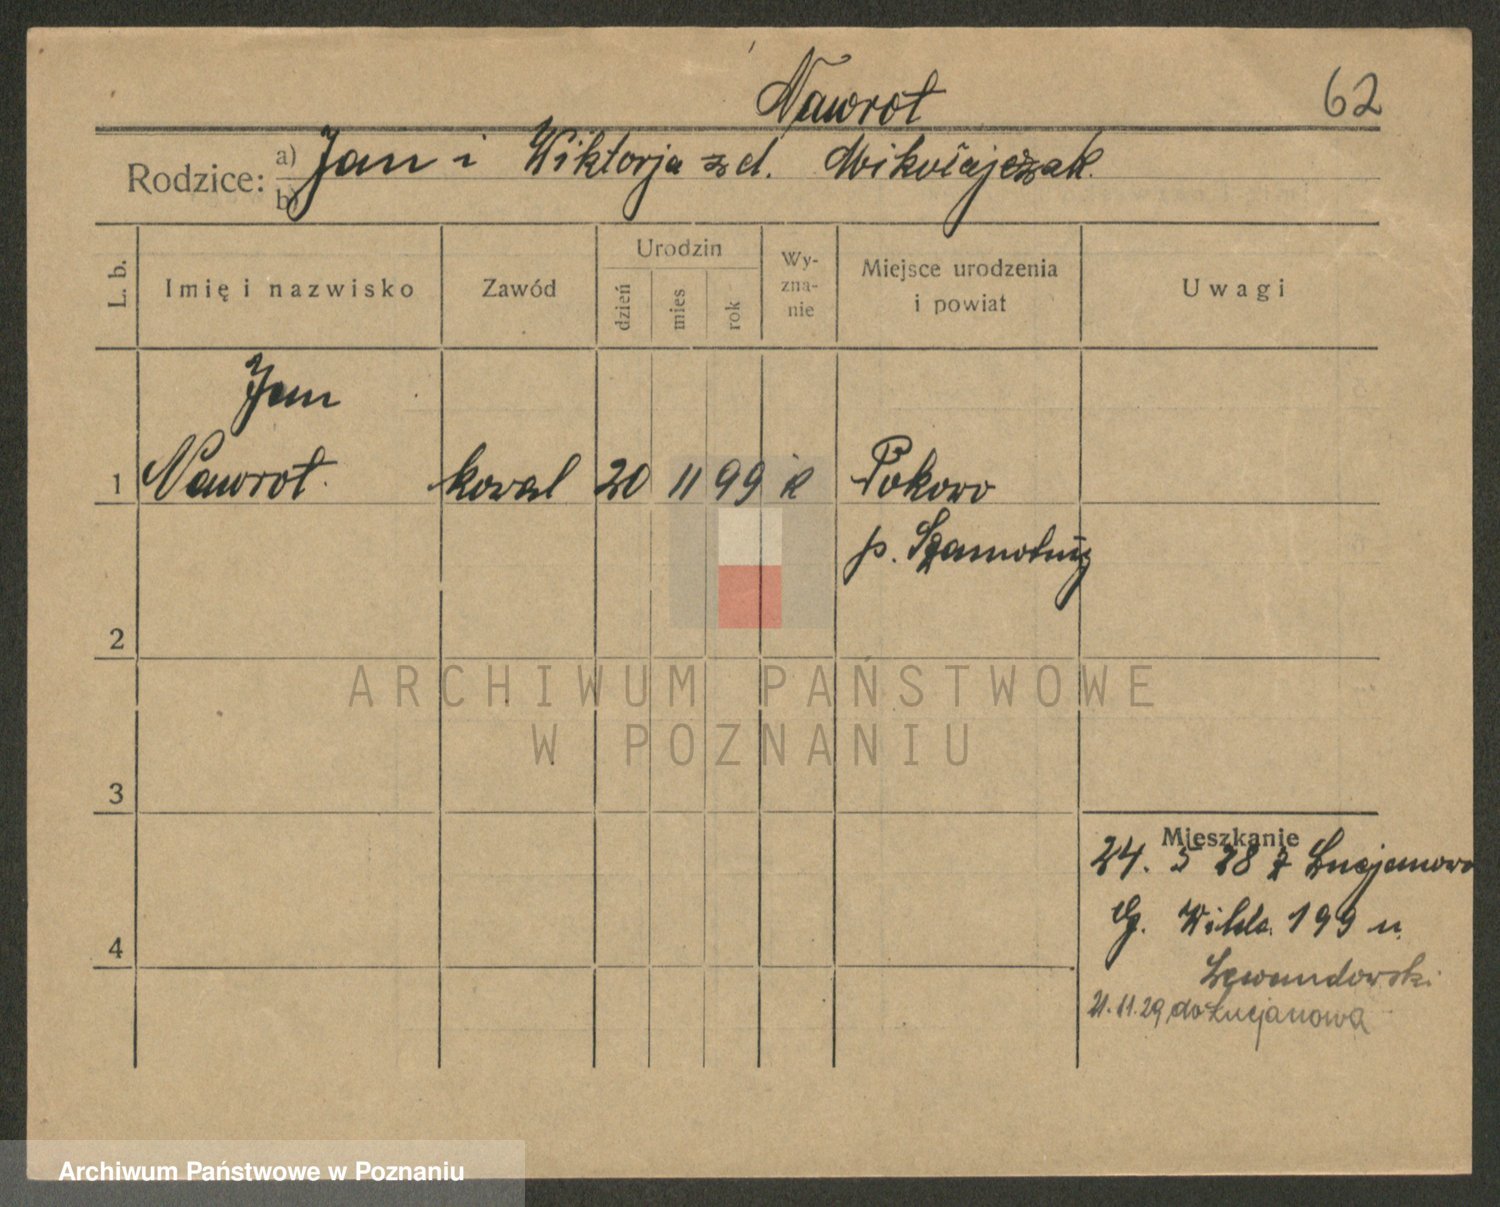 Nawrot
62
Rodzice: a) Jan i Wiktorja z d. Mikołajczak
b)
L. b.
Imię i nazwisko
Zawód
Urodzin
dzień
mies
rok
Wy-
zna-
nie
Miejsce urodzenia
i powiat
Uwagi
Jan
1 Nawrot. kowal 20 11 99 k Pokowo
p. Szamotuły
2
ARCHIWUM PAŃSTWOWE
W POZNANIU
3
Mieszkanie
24. 5 28 z Lucjanowo
G. Wilda 199 u
Lewandowski
4
21.11.29 do Lucjanowa
Archiwum Państwowe w Poznaniu